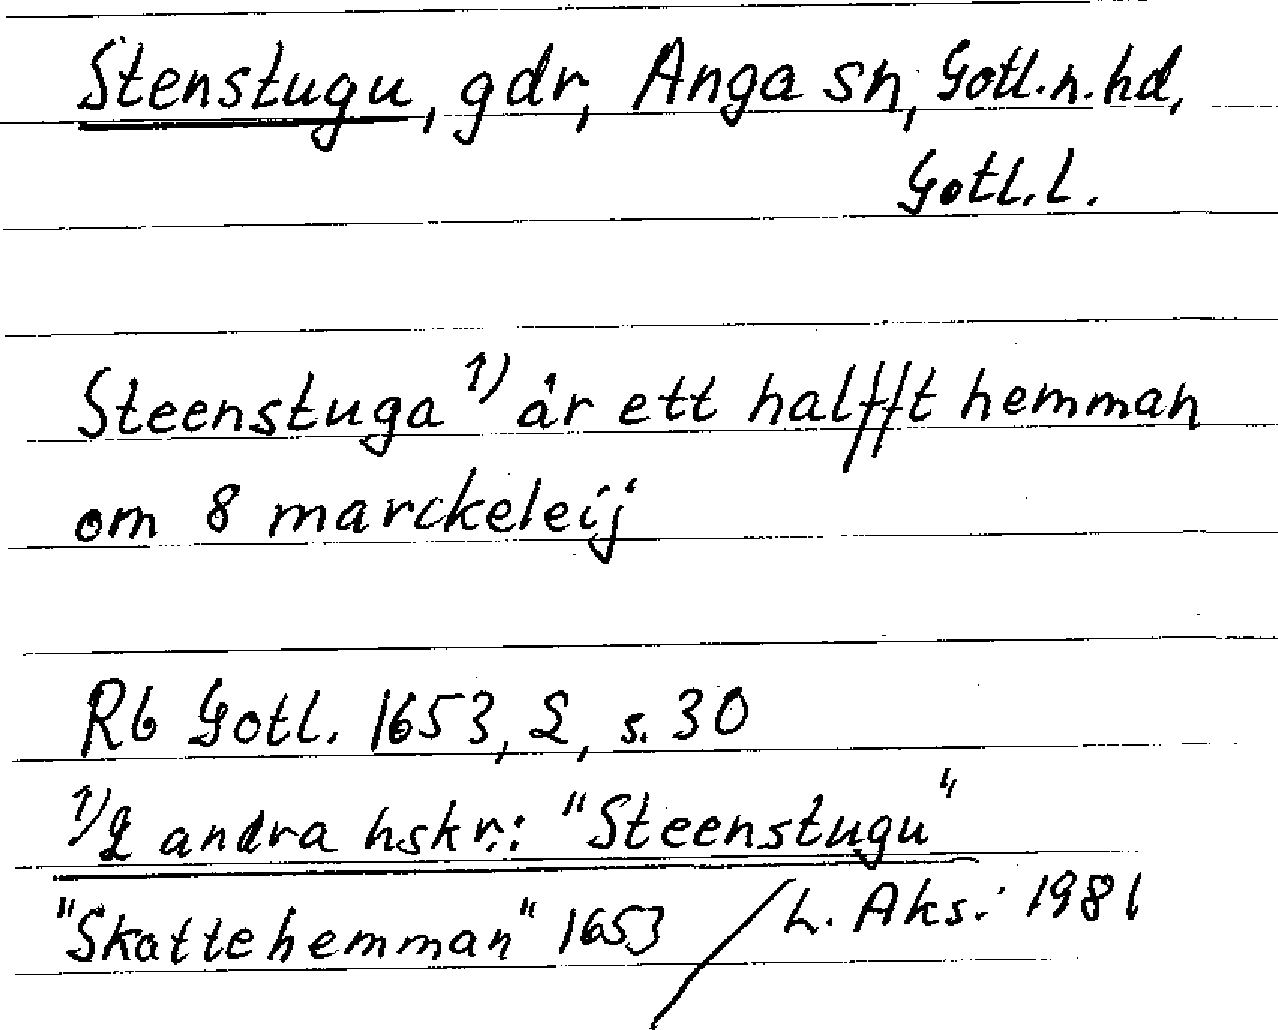 Stenstugu, gdr, Anga sn, Gotl. n. hd,
Gotl. l.
Steenstuga 1) år ett halfft hemman
om 8 marckeleij
Rb Gotl. 1653, 2, s. 30
1) 2 andra hskr.: "Steenstugu"
"Skattehemman" 1653 / L. Aks. 1981